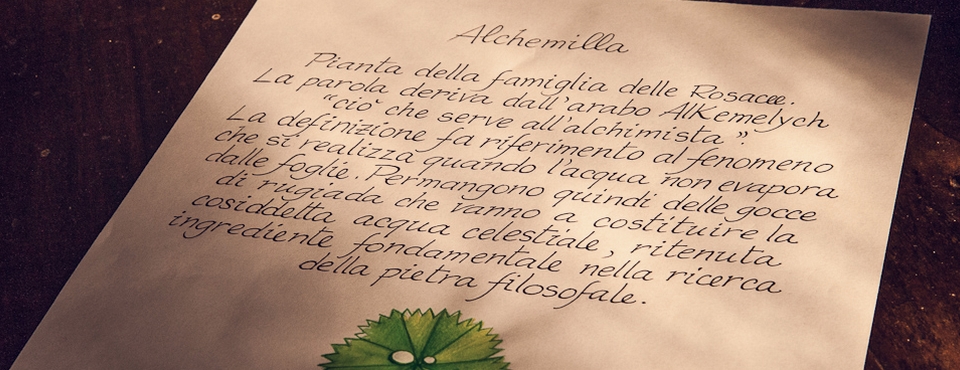 Alchemilla
Pianta della famiglia delle Rosacee.
La parola deriva dall'arabo AlKemelych
"ciò che serve all'alchimista".
La definizione fa riferimento al fenomeno
che si realizza quando l'acqua non evapora
dalle foglie. Permangono quindi delle gocce
di rugiada che vanno a costituire la
cosiddetta acqua celestiale, ritenuta
ingrediente fondamentale nella ricerca
della pietra filosofale.